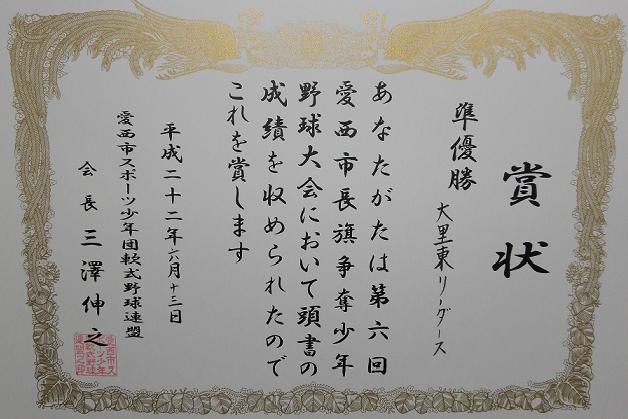 賞状
準優勝
大里東リーダース
あなたがたは第六回
愛西市長旗争奪少年
野球大会において頭書の
成績を収められたので
これを賞します
平成二十二年六月十三日
愛西市スポーツ少年団軟式野球連盟
会長 三澤伸之